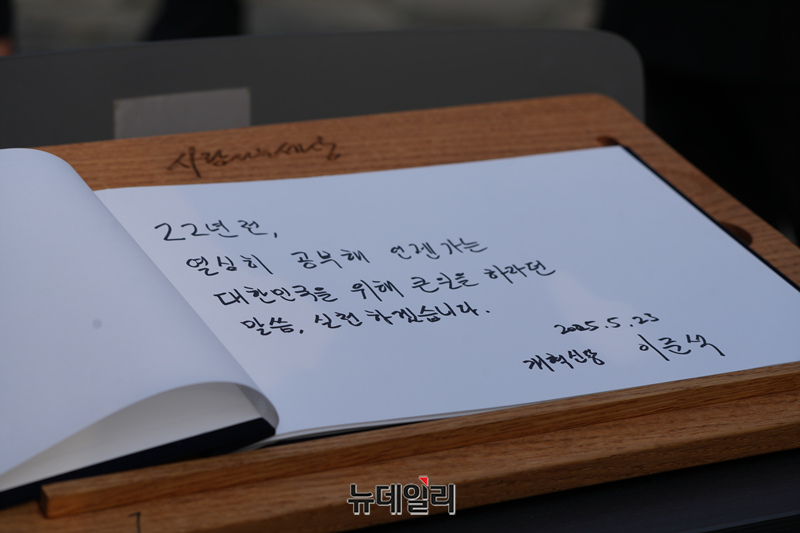 사람사는세상
22년 전,
열심히 공부해 언젠가는
대한민국을 위해 큰일을 하라던
말씀, 실천하겠습니다.
2025.5.23
개혁신당 이준석
뉴데일리